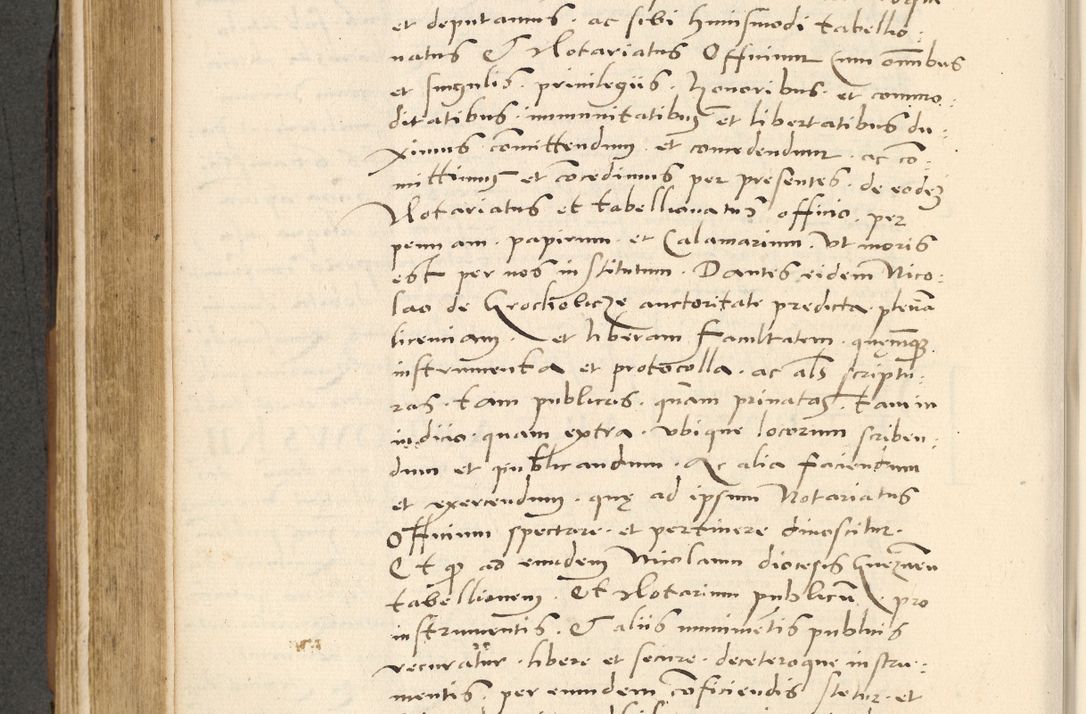 et deputamus · ac sibi huiusmodi tabellio:
natus Et Notariatus Officium Cum om̄ibus
et singulis · priuilegiis · honoribus · et commo:
ditatibus · immunitatibus et libertatibus du:
ximus com̄ittendum et concedendum · ac co̅:
mittimus et co̅cedimus per presentes · de eodem
Notariatus et tabellionatus officio · per
pennam · papirum · et Calamarium · Vt moris
est per nos institutum · Dantes eidem Nico:
lao de Grocholicze auctoritate predicta · plena̅
licenciam · et liberam facultatem · quęcu̅qꝫ
instrumenta et protocolla · ac al̅s scriptu:
ras · tam publicas · qua̅m priuatas · tam in
iudicio quam extra · vbique locorum scriben:
dum et publicandum · Ac alia faciendum
et exercendum · quę ad ipsum Notariatus
Officium spectare · et pertinere dinoscitur ·
Et qꝫ ad eundem Nicolaum diocesis Gnezn̄en
tabellionem · Et Notarium publicu̅ · pro
instrumentis · Et aliis munime̅tis publicis
recuratur · libere et secure · deceteroque instru:
mentis · per eundem co̅ficiendis stetur · et